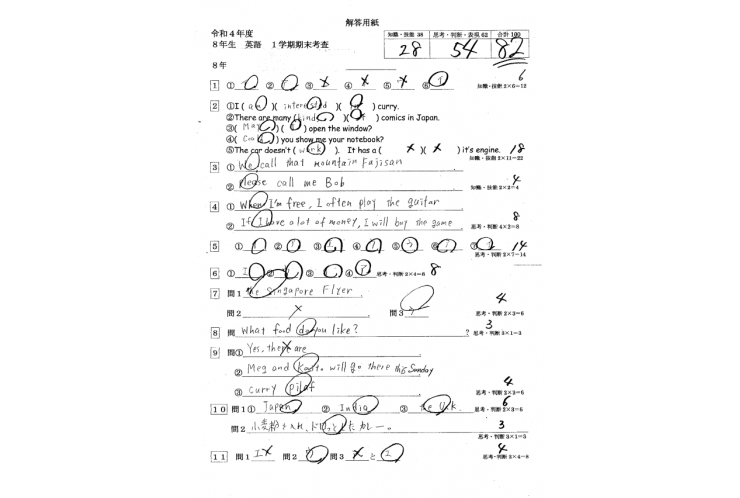 解答用紙
令和4年度
8年生 英語 1学期期末考査
知識・技能 38 思考・判断・表現 62 合計 100
28 54 82
8年
1 ① ② ③ ④ ⑤ ⑥ 6
知識・技能 2×6=12
2 ①I ( am )( interested )( ) curry.
②There are many ( kind )( of ) comics in Japan.
③( May )( I ) open the window?
④( Could ) you show me your notebook?
⑤The car doesn't ( work ). It has a ( )( ) it's engine. 18
知識・技能 2×11=22
3 ① We call that mountain Fujisan
② Please call me Bob 4
知識・技能 2×2=4
4 ① When I'm free, I often play the guitar
② If I have a lot of money, I will buy the game 8
思考・判断 4×2=8
5 ① ② ③ ④ ⑤ ⑥ ⑦ 14
思考・判断 2×7=14
6 ① ② ③ ④ 思考・判断 2×4=8 8
7 問1 the Singapore Flyer
問2 問3 4
思考・判断 2×3=6
8 問 What food do you like? ? 3
思考・判断 3×1=3
9 問① Yes, there are
② Meg and Kaito will go there this Sunday
③ curry pilaf 4
思考・判断 2×3=6
10 問1 ① Japan ② India ③ the U.K. 6
思考・判断 2×3=6
問2 小麦粉を入れ、ドロっとしたカレー。 3
思考・判断 3×1=3
11 問1 エ 問2 問3 と 4
思考・判断 2×4=8